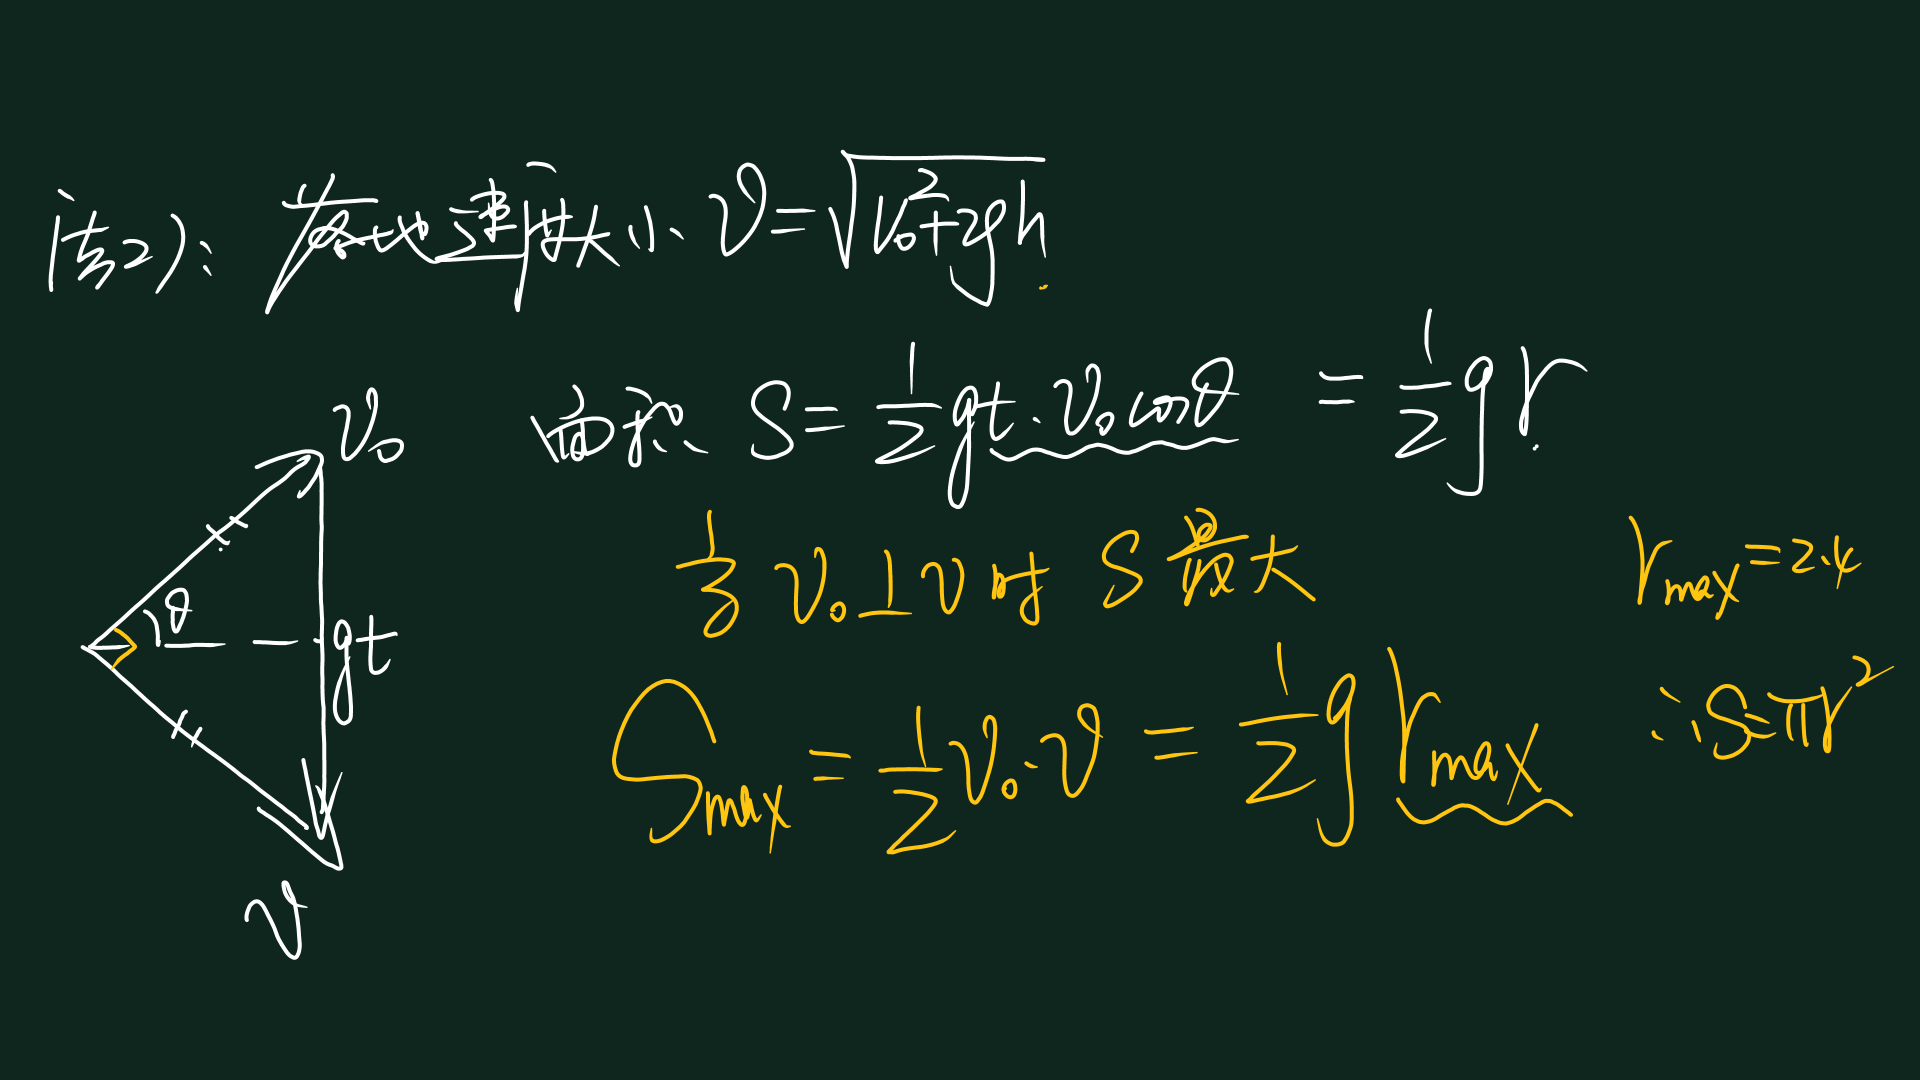 法2): 落地速度大小 v=√(v₀²+2gh)
v₀
面积 S=½gt·v₀cosθ = ½gr
当 v₀⊥v 时 S最大
r_max=2.4
θ
gt
S_max = ½v₀·v = ½g r_max
∴S=πr²
v